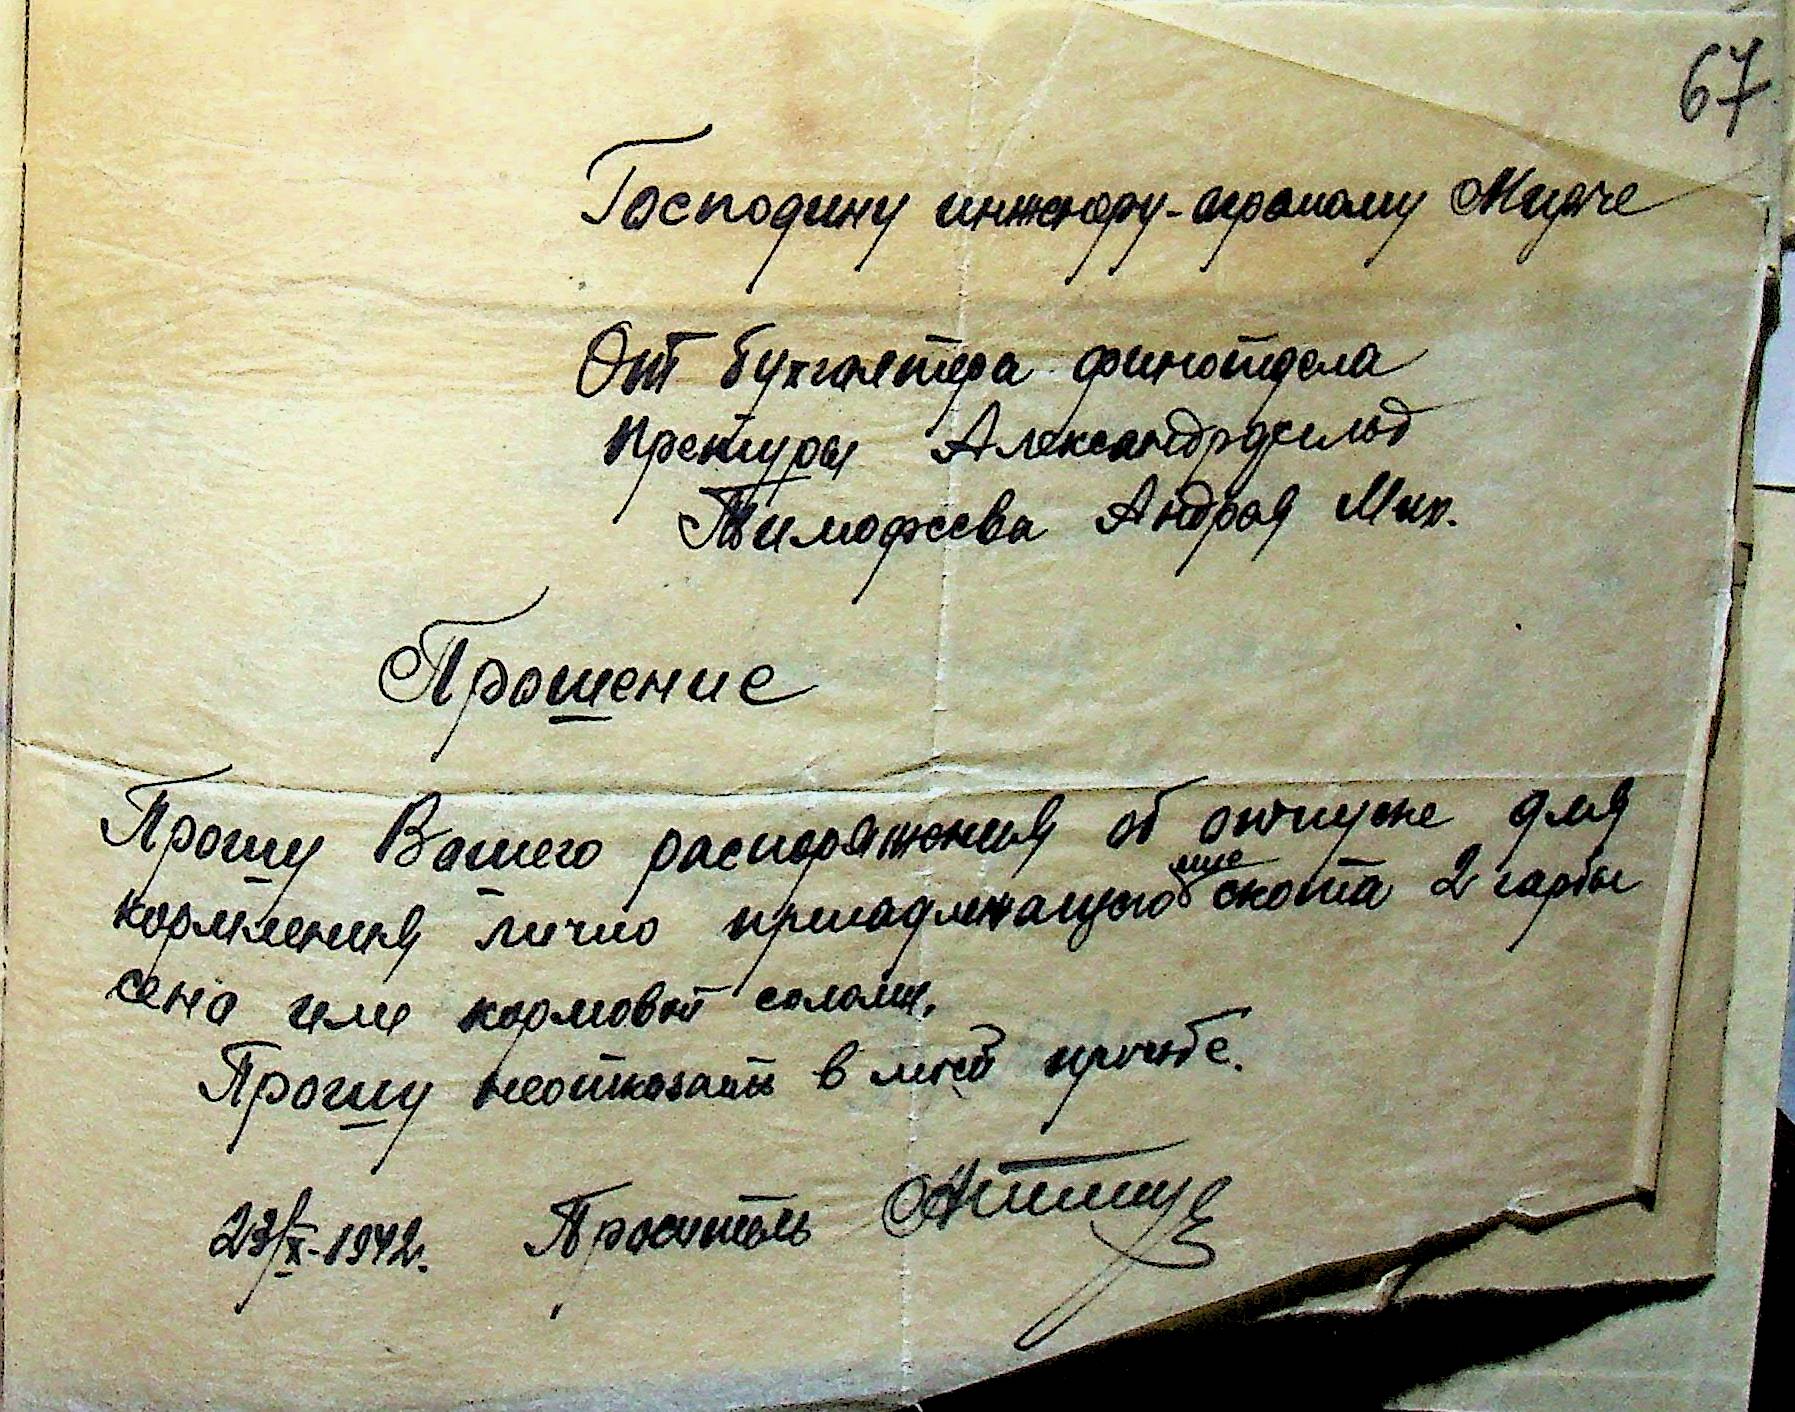 67
Господину инженеру-агроному
От бухгалтера финотдела
претуры Александрфельд
Тимофеева Андрея Мих.
Прошение
Прошу Вашего распоряжения об отпуске для
кормления лично принадлежащего мне скота 2 гарбы
сена или кормовой соломы.
Прошу неотказать в моей прозьбе.
23/X-1942. Проситель